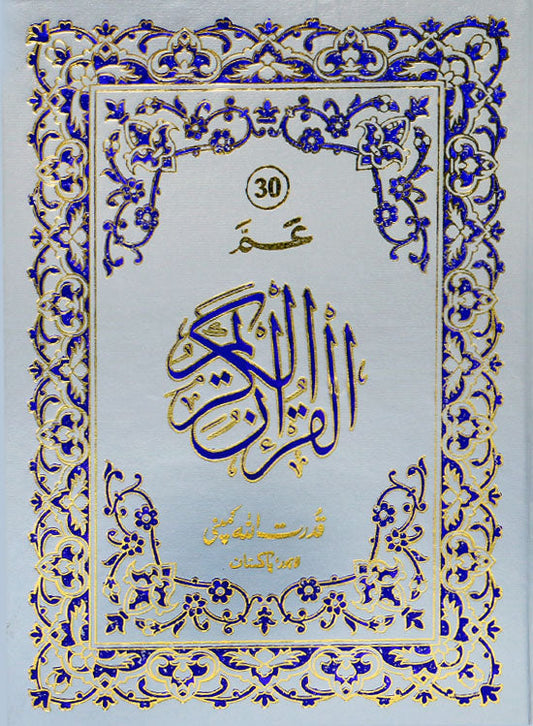 30
عَمَّ
القرآن الكريم
قدرت اللہ کمپنی
لاہور پاکستان